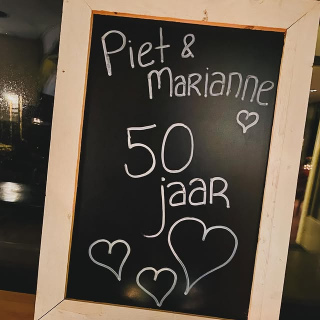 Piet &
Marianne
50
jaar